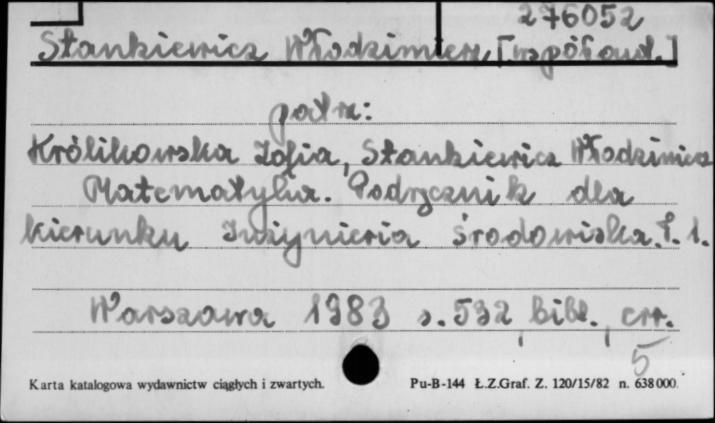 276052
Stankiewicz Włodzimierz [współaut.]
patrz:
Królikowska Zofia, Stankiewicz Włodzimierz
Matematyka. Podręcznik dla
kierunku Inżynieria środowiska. T. 1.
Warszawa 1983 s. 532, bibl.,
5
Karta katalogowa wydawnictw ciągłych i zwartych. Pu-B-144 Ł.Z.Graf. Z. 120/15/82 n. 638000.